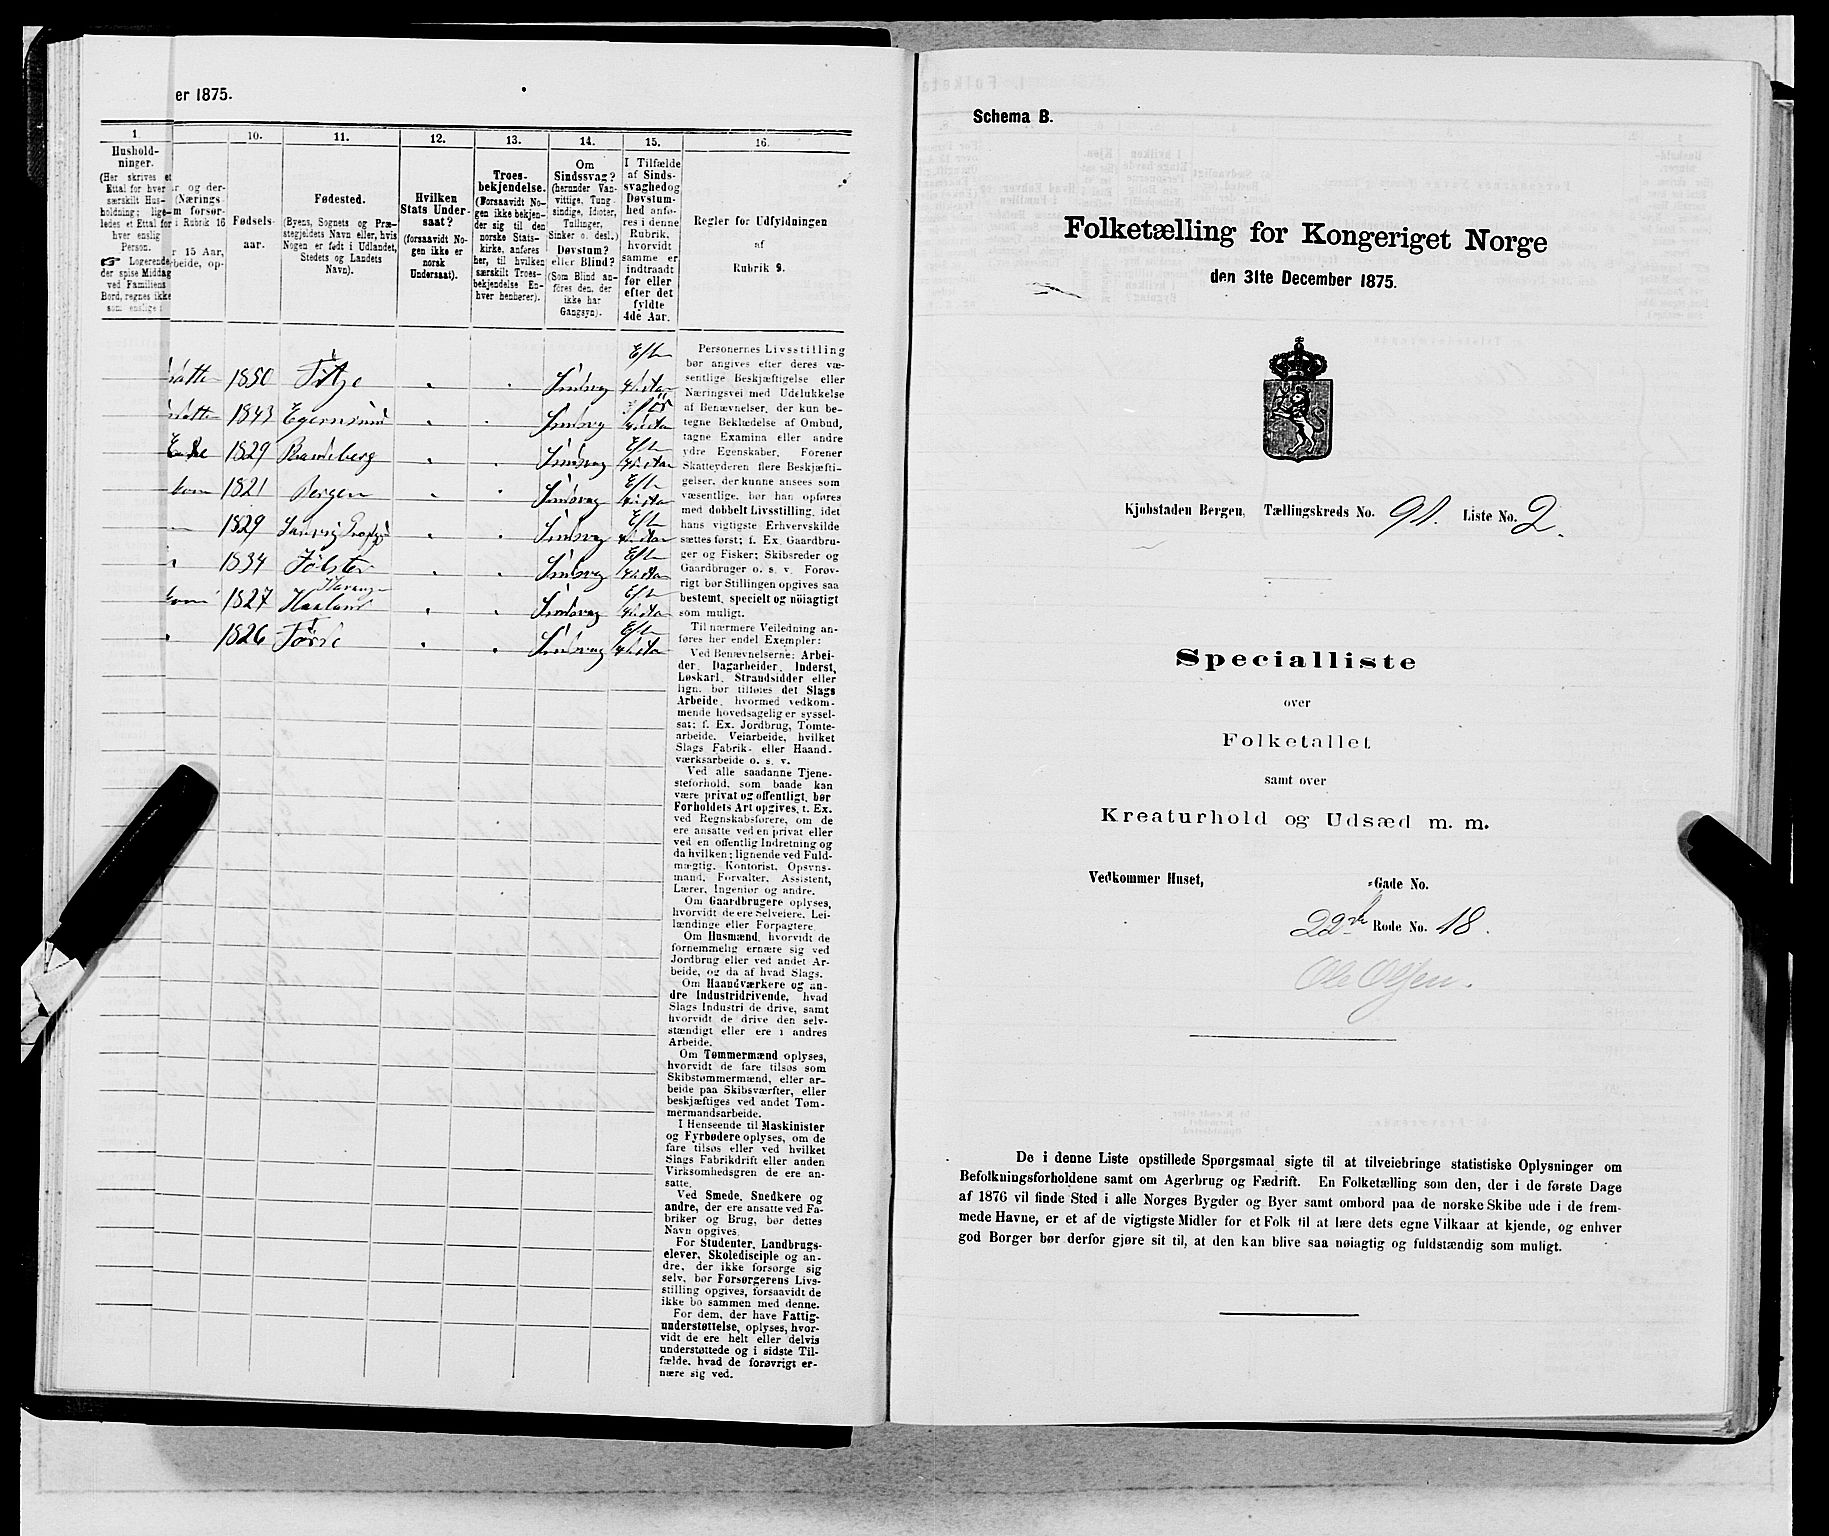 er 1875.
1.
Hushold-
ninger.
(Her skrives et
Ettal for hver
særskilt Hus-
holdning; lige-
ledes et Ettal for
hver enslig
Person.
☞ Logerende
der spise Middag
ved Familiens
Bord, regnes ikke
som enslige.
r og der-
(Nærings-
m forsør-
i Rubrik 16
r 15 Aar,
beide, op-
10.
Fødsels-
aar.
11.
Fødested.
(Byens, Sognets og Præ-
stegjeldets Navn eller, hvis
Nogen er født i Udlandet,
Stedets og Landets
Navn).
12.
Hvilken
Stats Under-
saat?
(forsaavidt No-
gen ikke er
norsk
Undersaat).
13.
Troes-
bekjendelse.
(Forsaavidt No-
gen ikke bekjen-
der sig til den
norske Stats-
kirke, anføres
her, til hvilken
særskilt Troes-
bekjendelse En-
hver henhører).
14.
Om
Sindssvag?
(herunder Van-
vittige, Tung-
sindige, Idioter,
Tullinger,
Sinker o. desl.)
Døvstum?
eller Blind?
(Som Blind an-
føres den, der
ikke har
Gangsyn).
15.
I Tilfælde
af Sinds-
svaghed og
Døvstum-
hed anfø-
res i denne
Rubrik,
hvorvidt
samme er
indtraadt
før eller
efter det
fyldte
4de Aar.
16.
Regler for Udfyldningen
af
Rubrik 9.
1850
1843 Egersund
1829
1821 Bergen
1829
1834 Jølster
1827 Haaland
1826
Personernes Livsstilling
bør angives efter deres væ-
sentlige Beskjæftigelse eller
Næringsvei med Udelukkelse
af Benævnelser, der kun be-
tegne Beklædelse af Ombud,
tagne Examina eller andre
ydre Egenskaber. Forener
Skatteyderen flere Beskjæfti-
gelser, der kunne ansees som
væsentlige, bør han opføres
med dobbelt Livsstilling, idet
hans vigtigste Erhvervskilde
sættes først; f. Ex. Gaardbru-
ger og Fisker; Skibsreder og
Gaardbruger o. s. v. Forøv-
rigt bør Stillingen opgives saa
bestemt, specielt og nöiagtigt
som muligt.
Til nærmere Veiledning an-
føres her endel Exempler:
Ved Benævnelserne: Arbei-
der, Dagarbeider, Inderst,
Løskarl, Strandsidder eller
lign. bør tilføies det Slags
Arbeide, hvormed vedkom-
mende hovedsagelig er syssel-
sat; f. Ex. Jordbrug, Tomte-
arbeide, Veiarbeide, hvilket
Slags Fabrik- eller Haand-
værksarbeide o. s. v.
Ved alle saadanne Tjene-
steforhold, som baade kan
være privat og offentligt, bør
Forholdets Art opgives, t. Ex.
ved Regnskabsførere, om de
ere ansatte ved en privat eller
ved en offentlig Indretning og
da hvilken; lignende ved Fuld-
mægtig, Kontorist, Opsyns-
mand, Forvalter, Assistent,
Lærer, Ingeniør og andre.
Om Gaardbrugere oplyses,
hvorvidt de ere Selveiere, Lei-
lændinge eller Forpagtere.
Om Husmænd, hvorvidt de
fornemmelig ernære sig ved
Jordbrug eller ved andet Ar-
beide, og da af hvad Slags.
Om Haandværkere og an-
dre Industridrivende, hvad
Slags Industri de drive, samt
hvorvidt de drive den selv-
stændigt eller ere i andres
Arbeide.
Om Tømmermænd oplyses,
hvorvidt de fare tilsøs som
Skibstømmermænd, eller ar-
beide paa Skibsværfter, eller
beskjæftiges ved andet Tøm-
mermandsarbeide.
I Henseende til Maskinister
og Fyrbødere oplyses, om de
fare tilsøs eller ved hvilket
Slags Fabrikdrift eller anden
Virksomhedsgren de ere an-
satte.
Ved Smede, Snedkere og
andre, der ere ansatte ved Fa-
briker og Brug, bør dettes
Navn opgives.
For Studenter, Landbrugs-
elever, Skoledisciple og an-
dre, der ikke forsørge sig
selv, bør Forsørgerens Livs-
stilling opgives, forsaavidt de
ikke bo sammen med denne.
For dem, der have Fattig-
understøttelse, oplyses, hvor-
vidt de ere helt eller delvis
understøttede og i sidste Til-
fælde, hvad de forøvrigt er-
nære sig ved.
Schema B.
Folketælling for Kongeriget Norge
den 31te December 1875.
Kjøbstaden Bergen, Tællingskreds No. 91. Liste No. 2.
Specialliste
over
Folketallet
samt over
Kreaturhold og Udsæd m. m.
Vedkommer Huset, -Gade No.
22de Rode No. 18.
Ole Olsen.
De i denne Liste opstillede Spørgsmaal sigte til at tilveiebringe statistiske Oplysninger om
Befolkningsforholdene samt om Agerbrug og Fædrift. En Folketælling som den, der i de første Dage
af 1876 vil finde Sted i alle Norges Bygder og Byer samt ombord paa de norske Skibe ude i de frem-
mede Havne, er et af de vigtigste Midler for et Folk til at lære dets egne Vilkaar at kjende, og enhver
god Borger bør derfor gjøre sit til, at den kan blive saa nøiagtig og fuldstændig som muligt.